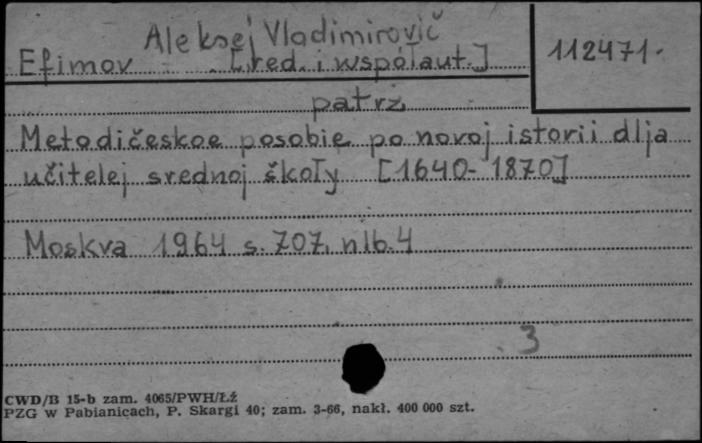 Aleksej Vladimirovič
Efimov [red. i współaut.]
112471.
patrz
Metodičeskoe posobie po novoj istorii dlja
učitelej srednoj škoły [1640-1870]
Moskva 1964 s. 707, nlb. 4
3
CWD/B 15-b zam. 4065/PWH/ŁŹ
PZG w Pabianicach, P. Skargi 40; zam. 3-66, nakł. 400 000 szt.